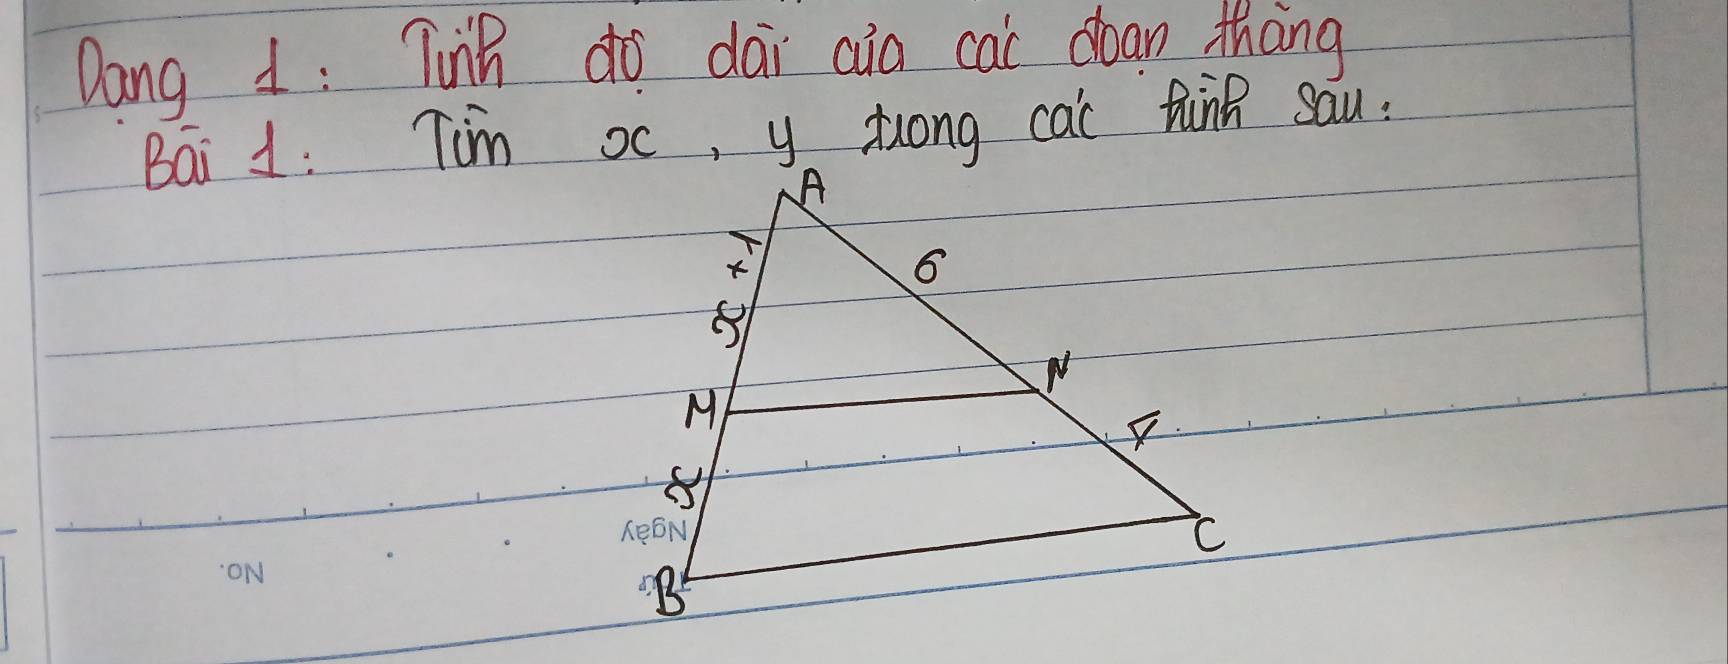 Dạng 1: Tính độ dài của các đoạn thẳng
Bài 1: Tìm x, y trong các hình sau:
A
x + 1
6
M
N
x
4
Ngày
No.
B
C